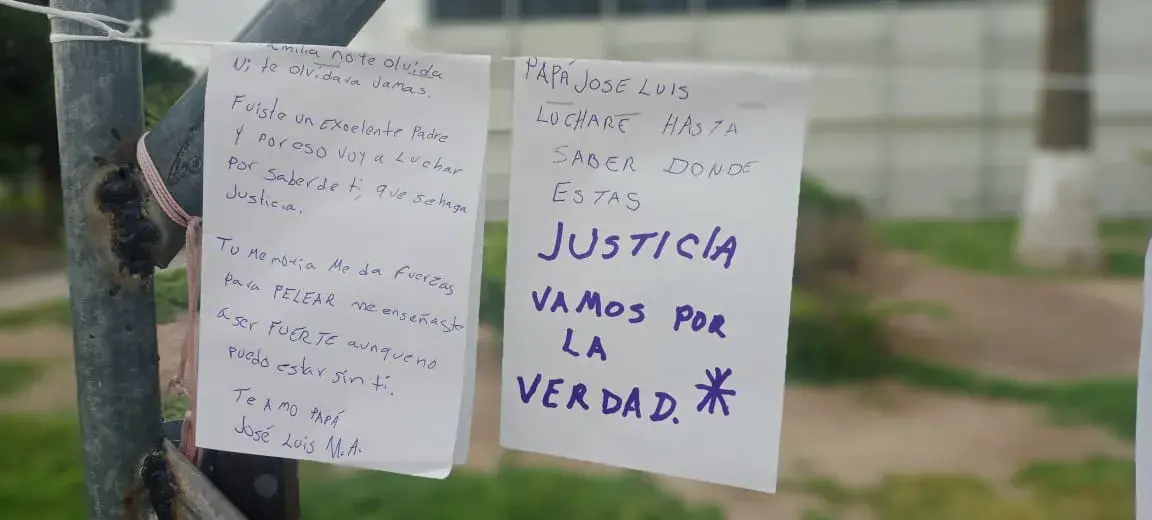 amilia no te olvida
Ni te olvidava Jamas.
Fuiste un Excelente Padre
y por eso voy a Luchar
por saber de ti, que se haga
Justicia.
Tu Memoria Me da fuerzas
para PELEAR me enseñaste
a ser FUERTE aunque no
puedo estar sin ti.
Te AMO PAPÁ
José Luis M.A.
PAPÁ JOSE LUIS
LUCHARE HASTA
SABER DONDE
ESTAS
JUSTICIA
VAMOS POR
LA
VERDAD. *